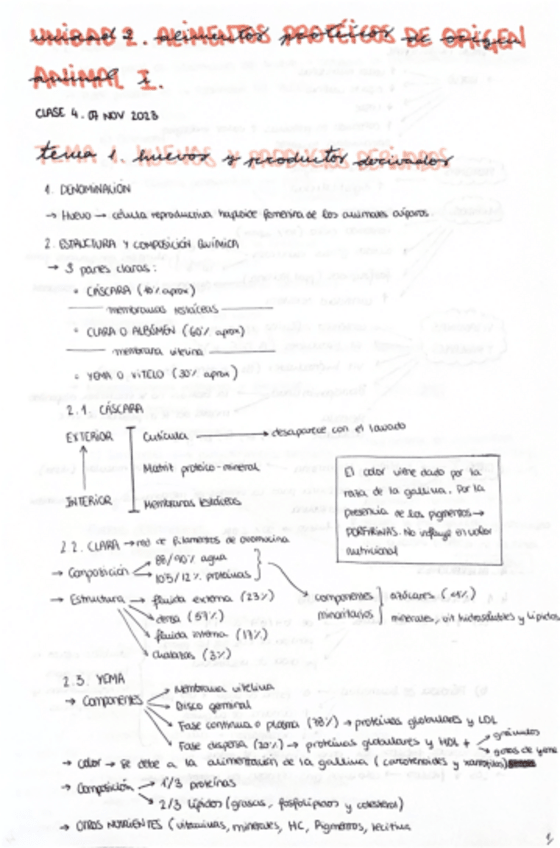 UNIDAD 2. ALIMENTOS PROTÉICOS DE ORIGEN
ANIMAL I.
CLASE 4. 07 NOV 2023
TEMA 1. HUEVOS Y PRODUCTOS DERIVADOS
1. DENOMINACIÓN
→ Huevo → célula reproductiva haploide femenina de los animales ovíparos.
2. ESTRUCTURA Y COMPOSICIÓN QUÍMICA
→ 3 partes claras:
• CÁSCARA (10% aprox)
membranas testáceas
• CLARA O ALBÚMEN (60% aprox)
membrana vitelina
• YEMA O VITELO (30% aprox)
2.1. CÁSCARA
EXTERIOR
Cutícula → desaparece con el lavado
Matriz proteico-mineral
INTERIOR
Membranas testáceas
El color viene dado por la
raza de la gallina. Por la
presencia de los pigmentos →
PORFIRINAS. No influye en valor
nutricional
2.2. CLARA → red de filamentos de ovomucina
→ Composición
88/90% agua
10'5/12% proteínas
componentes minoritarios
azúcares
minerales, vit hidrosolubles y lípidos
→ Estructura → fluida externa (23%)
densa (57%)
fluida interna (17%)
chalazas (3%)
2.3. YEMA
→ Componentes
Membrana vitelina
Disco germinal
Fase continua o plasma (78%) → proteínas globulares y LDL
Fase dispersa → proteínas globulares y HDL +
gránulos
gotas de yema
→ Color → se debe a la alimentación de la gallina (carotenoides y xantofilas)
→ Composición → 1/3 proteínas
2/3 lípidos (grasas, fosfolípidos y colesterol)
→ OTROS NUTRIENTES (vitaminas, minerales, HC, Pigmentos, lecitina